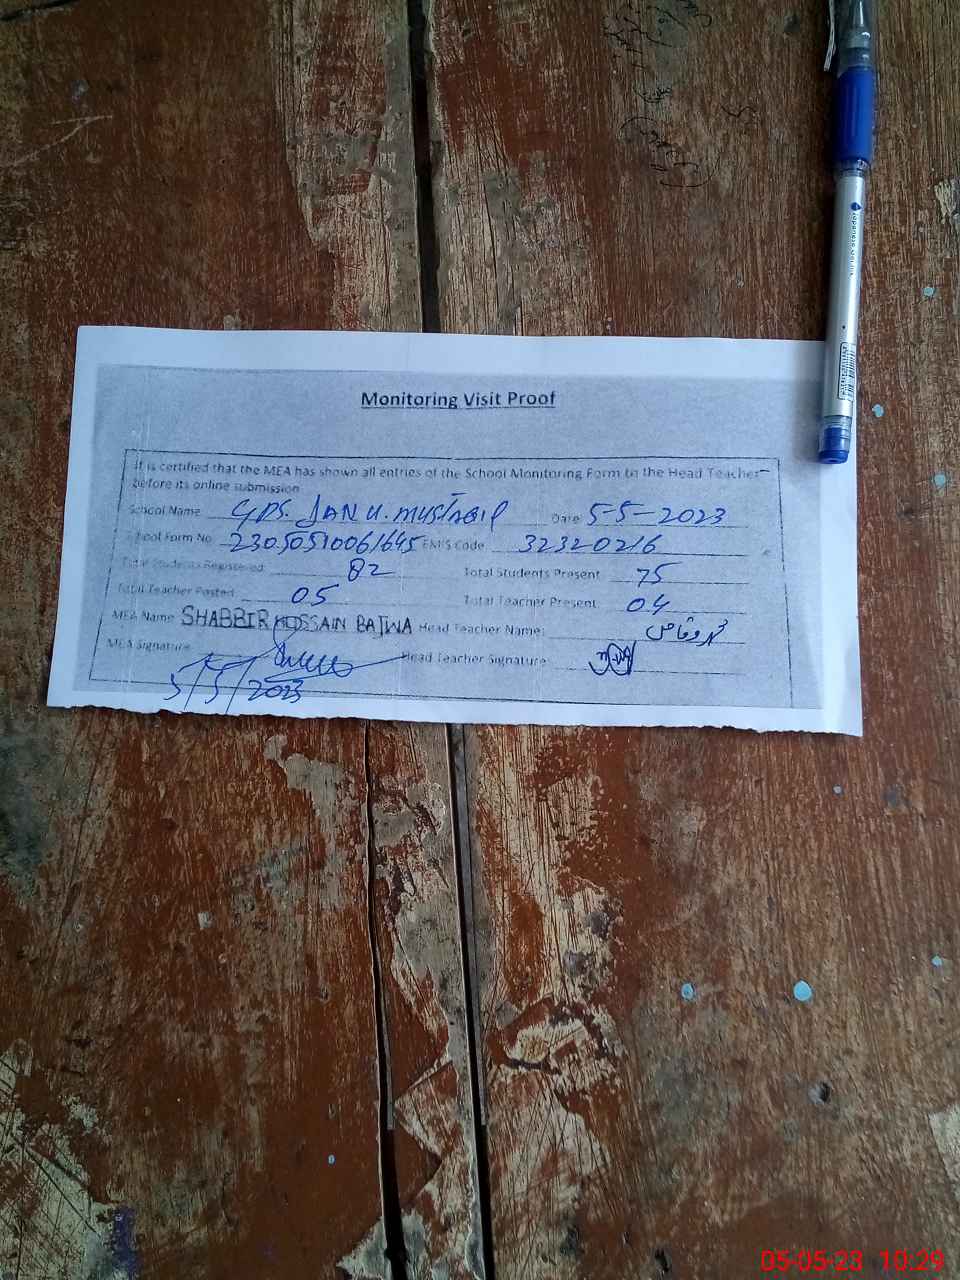 Monitoring Visit Proof
It is certified that the MEA has shown all entries of the School Monitoring Form to the Head Teacher
before its online submission
School Name GPS. JANU. MUSTAQIL Date 5-5-2023
School Form No EMIS Code 32320216
Total Students Registered 82 Total Students Present 75
Total Teacher Posted 05 Total Teacher Present 04
MEA Name SHABBIR HUSSAIN BAJWA Head Teacher Name: محمد وقاص
MEA Signature Head Teacher Signature
5/5/2023
05-05-23 10:29